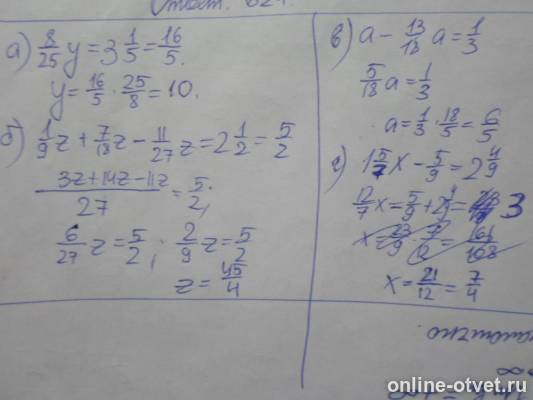 Ответ.
а) 8/25 y = 3 1/5 = 16/5.
y = 16/5 · 25/8 = 10.
б) 1/9 z + 7/18 z - 11/27 z = 2 1/2 = 5/2
(3z+14z-11z)/27 = 5/2;
6/27 z = 5/2; 2/9 z = 5/2
z = 45/4
в) a - 13/18 a = 1/3
5/18 a = 1/3
a = 1/3 · 18/5 = 6/5
г) 1 5/7 x - 5/9 = 2 4/9
12/7 x = 5/9 + 2 4/9 = 3
x = 23/9 · 7/12 = 161/108
x = 21/12 = 7/4
online-otvet.ru